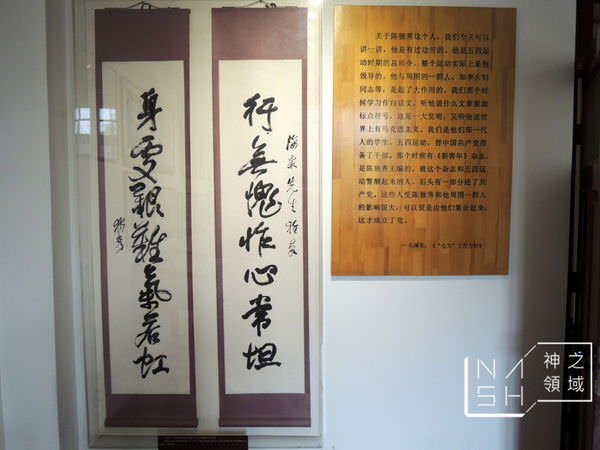 行無愧怍心常坦
海粟先生雅教
身處艱難氣若虹
獨秀
关于陈独秀这个人，我们今天可以
讲一讲，他是有过功劳的。他是五四运
动时期的总司令，整个运动实际上是他
领导的，他与周围的一群人，如李大钊
同志等，是起了大作用的。我们那个时
候学习作白话文，听他说什么文章要加
标点符号，这是一大发明，又听他说世
界上有马克思主义。我们是他们那一代
人的学生。五四运动，替中国共产党准
备了干部。那个时候有《新青年》杂志，
是陈独秀主编的。被这个杂志和五四运
动警醒起来的人，后头有一部分进了共
产党。这些人受陈独秀和他周围一群人
的影响很大，可以说是由他们集合起来，
这才成立了党。
—毛泽东：《“七大”工作方针》
NASH
神之
領域